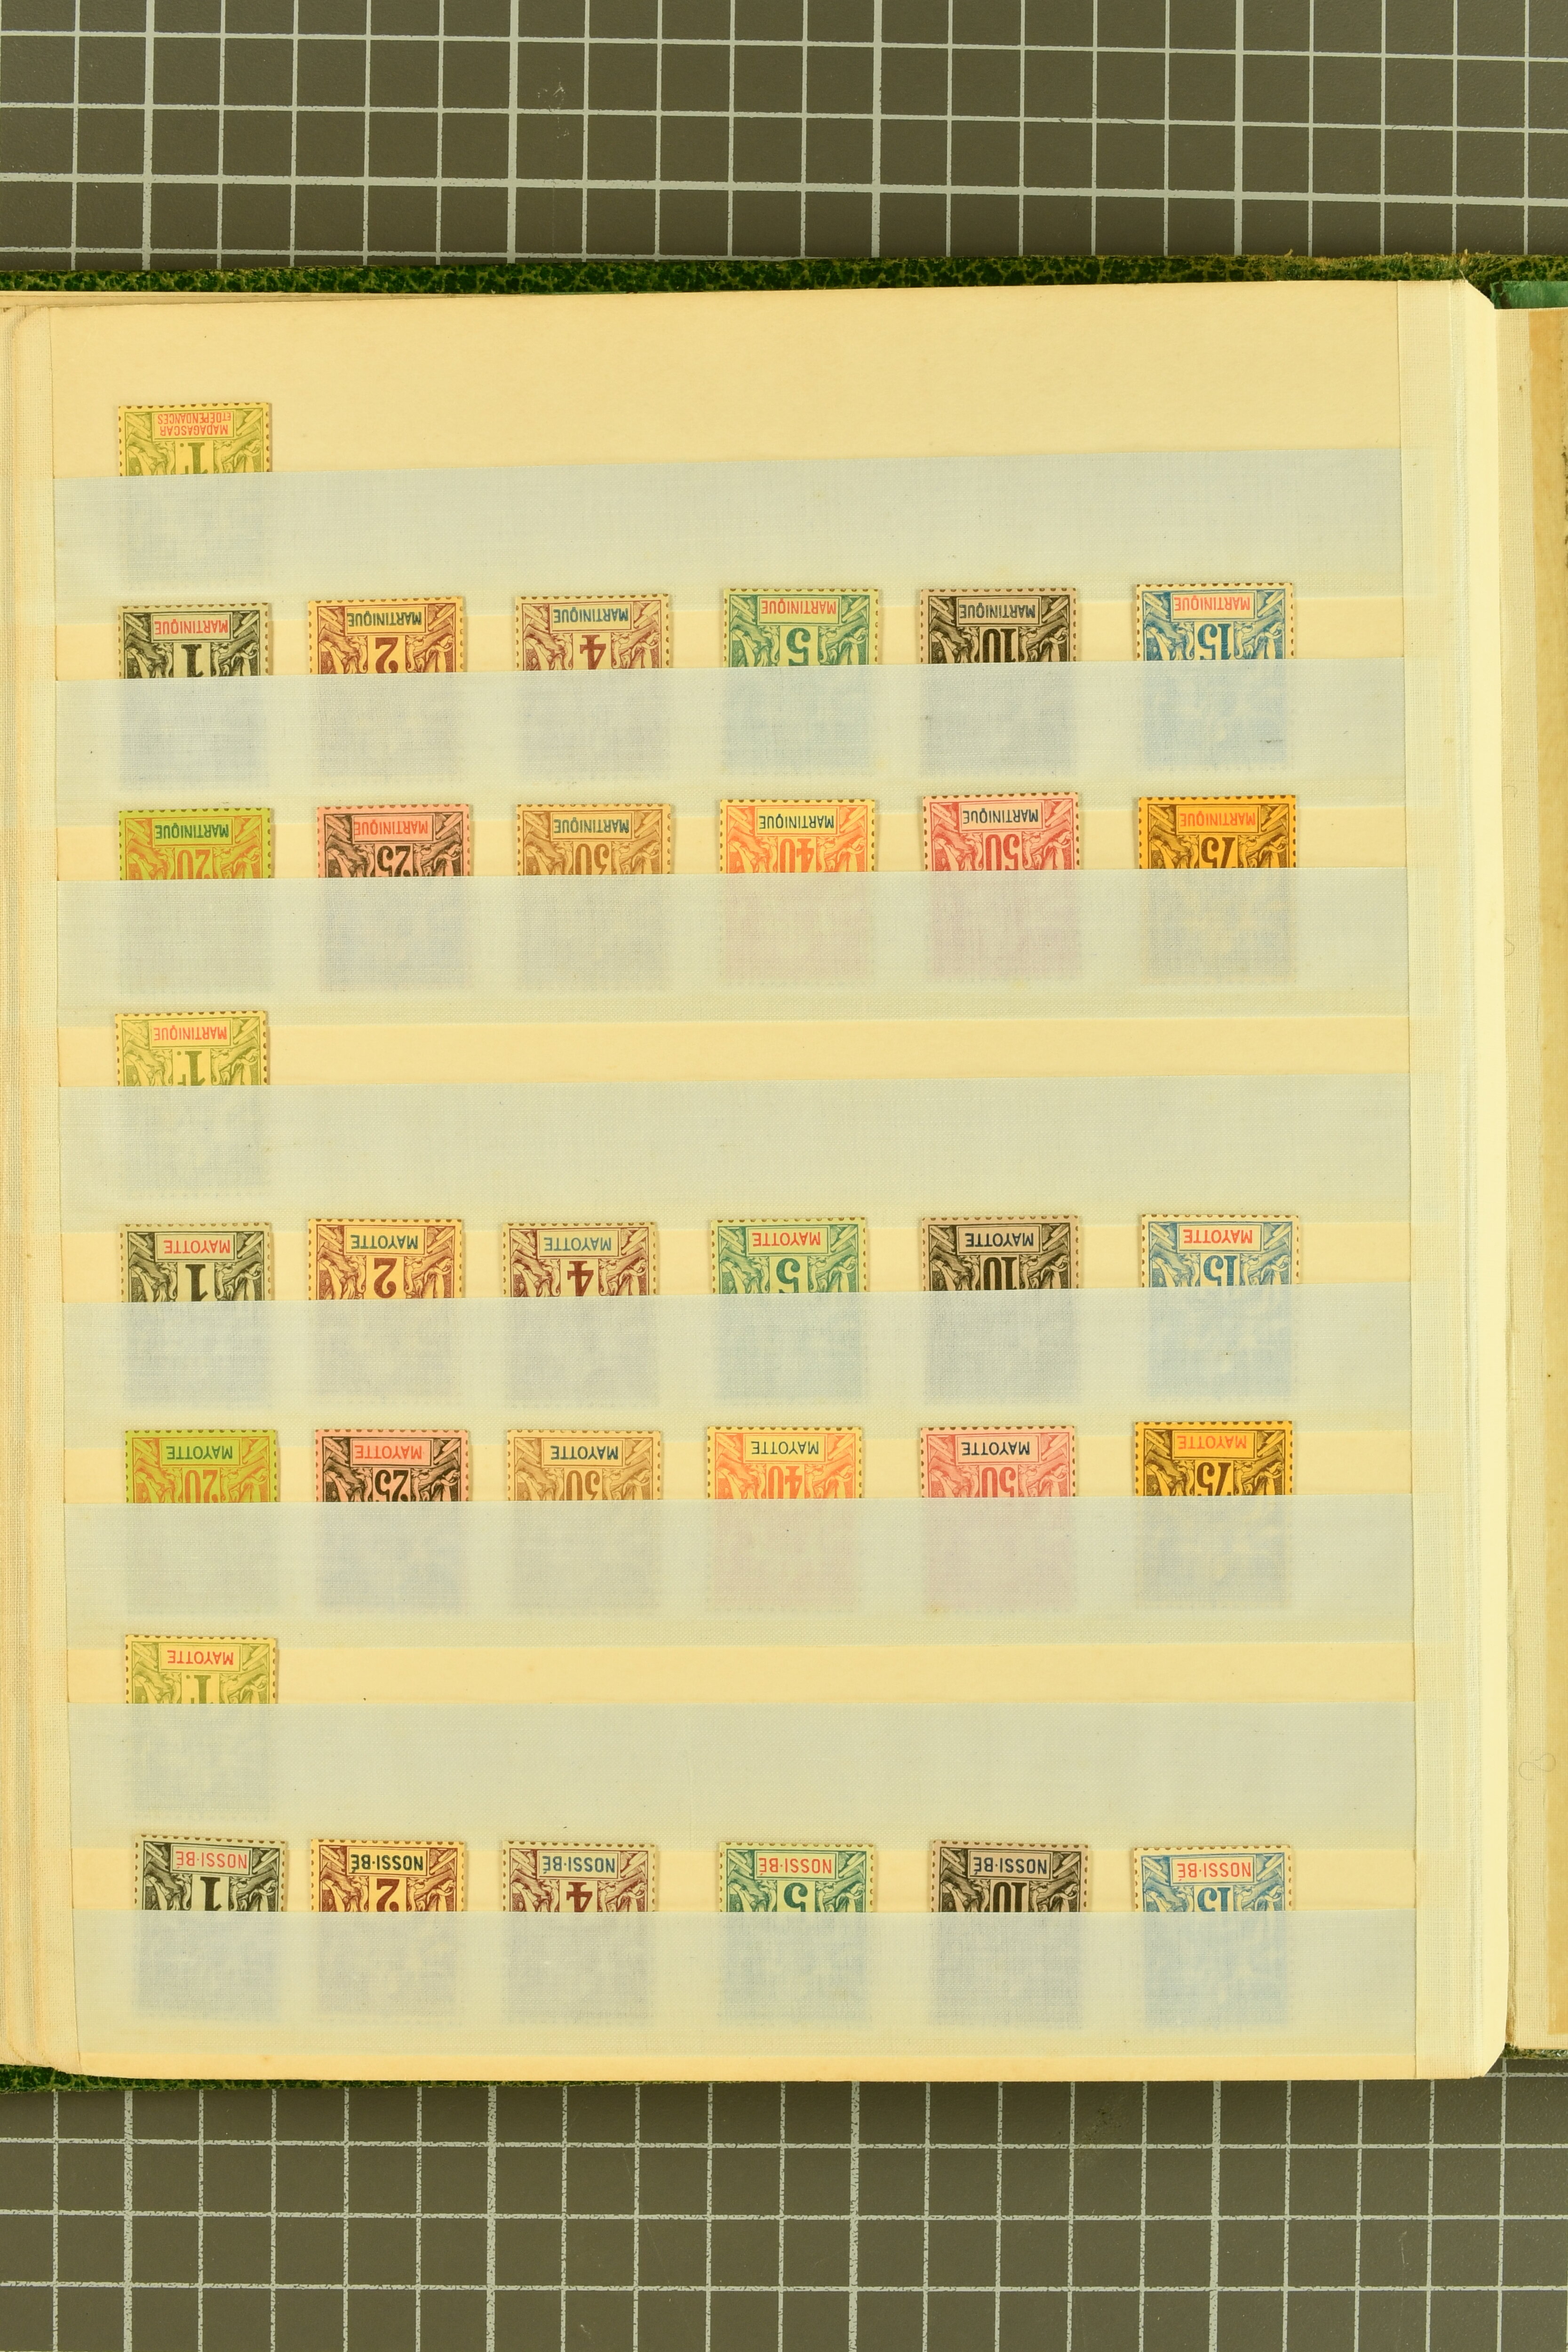 MADAGASCAR
ET DÉPENDANCES
1F
MARTINIQUE
1
MARTINIQUE
2
MARTINIQUE
4
MARTINIQUE
5
MARTINIQUE
10
MARTINIQUE
15
MARTINIQUE
20
MARTINIQUE
25
MARTINIQUE
30
MARTINIQUE
40
MARTINIQUE
50
MARTINIQUE
75
MARTINIQUE
1F
MAYOTTE
1
MAYOTTE
2
MAYOTTE
4
MAYOTTE
5
MAYOTTE
10
MAYOTTE
15
MAYOTTE
20
MAYOTTE
25
MAYOTTE
30
MAYOTTE
40
MAYOTTE
50
MAYOTTE
75
MAYOTTE
1F
NOSSI-BÉ
1
NOSSI-BÉ
2
NOSSI-BÉ
4
NOSSI-BÉ
5
NOSSI-BÉ
10
NOSSI-BÉ
15